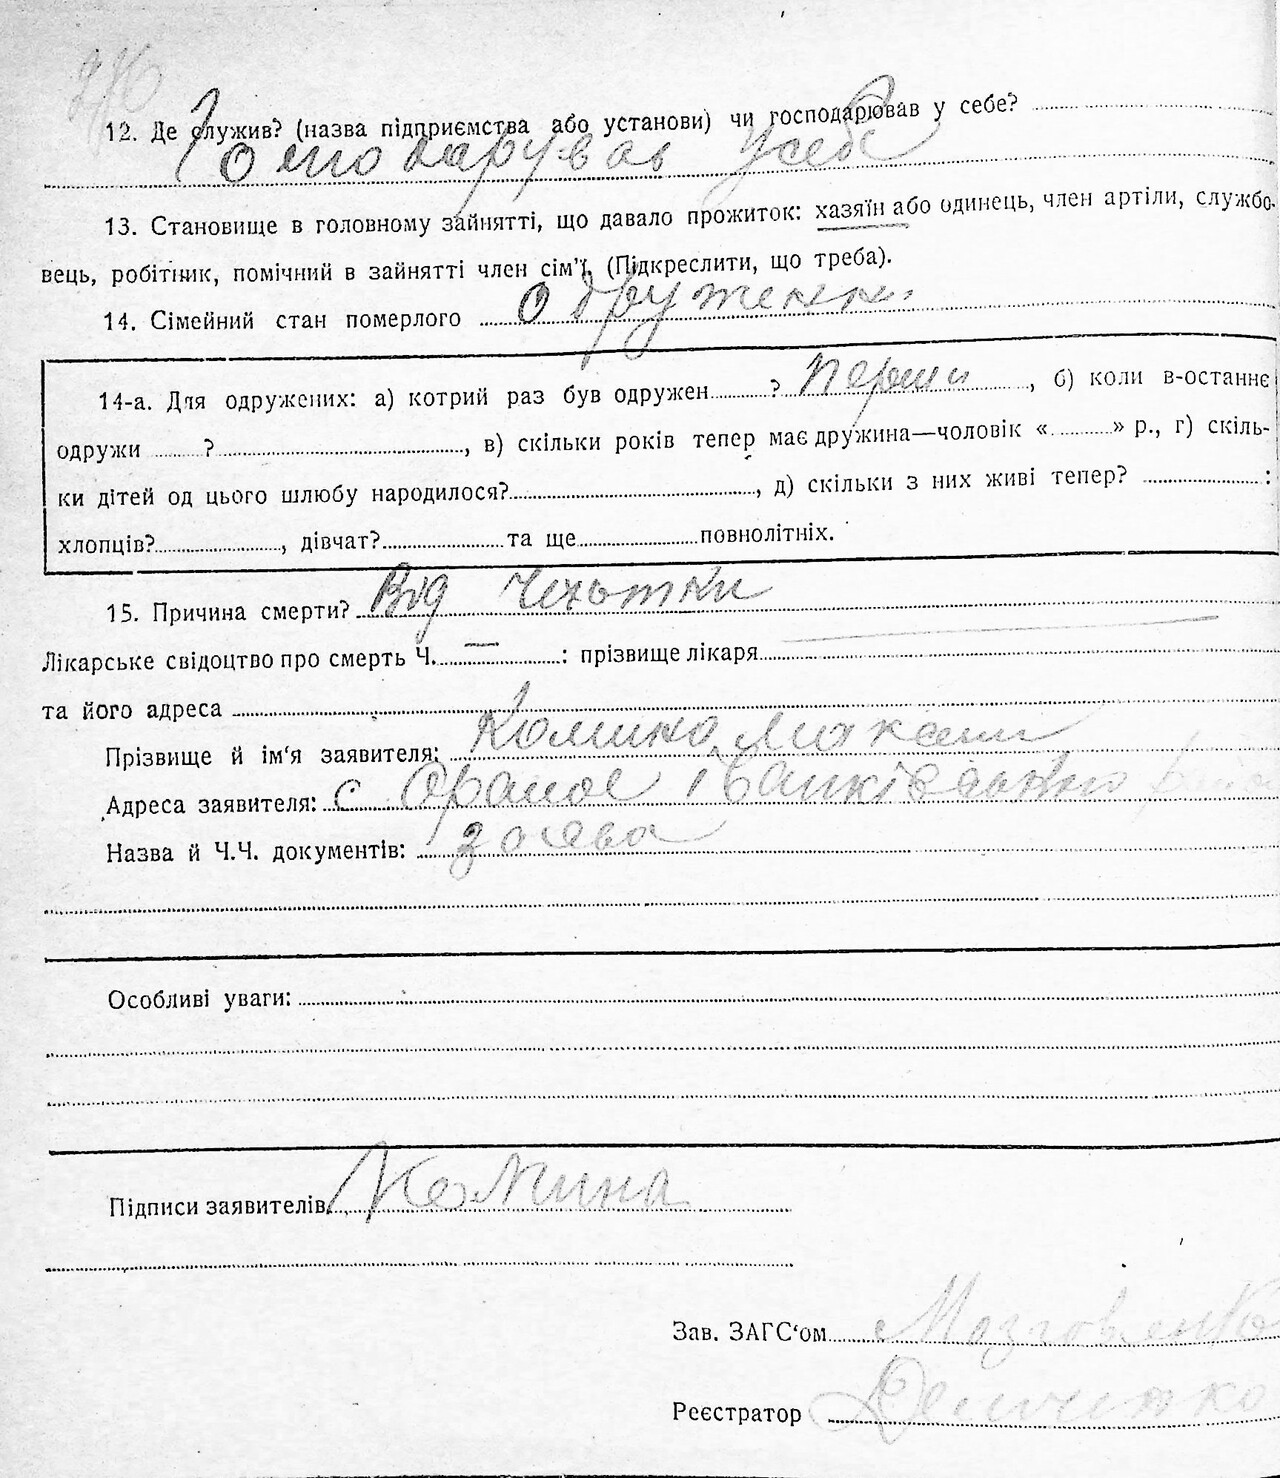 12. Де служив? (назва підприємства або установи) чи господарював у себе?
Господарував у себе
13. Становище в головному зайнятті, що давало прожиток: хазяїн або одинець, член артіли, службо-
вець, робітник, помічний в зайнятті член сім'ї. (Підкреслити, що треба).
14. Сімейний стан померлого одружений
14-а. Для одружених: а) котрий раз був одружен ? перший, б) коли в-останнє
одружи ? , в) скільки років тепер має дружина—чоловік « » р., г) скіль-
ки дітей од цього шлюбу народилося? , д) скільки з них живі тепер? :
хлопців? , дівчат? та ще повнолітніх.
15. Причина смерти? Від чехотки
Лікарське свідоцтво про смерть Ч. — : прізвище лікаря
та його адреса
Прізвище й ім'я заявителя: Комина Максим
Адреса заявителя: с Ораное Іванківського
Назва й Ч.Ч. документів:
Особливі уваги:
Підписи заявителів. Комина
Зав. ЗАГС'ом
Реєстратор